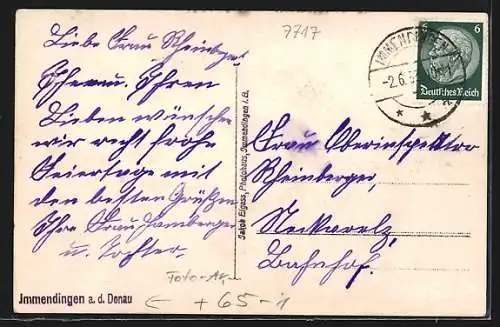 7717
Liebe Frau Rheinberger
Ihnen u. Ihren
Lieben wünschen
wir recht frohe
Feiertage mit
den besten Grüßen
Ihre Frau Hamberger
u. Tochter.
IMMENDINGEN
-2.6.
6 6
Deutsches Reich
Jakob Eigass, Photohaus, Immendingen i. B.
Frau Oberinspektor
Rheinberger,
Neckarelz,
Bahnhof.
Foto-AK
Jmmendingen a. d. Donau
+65-1